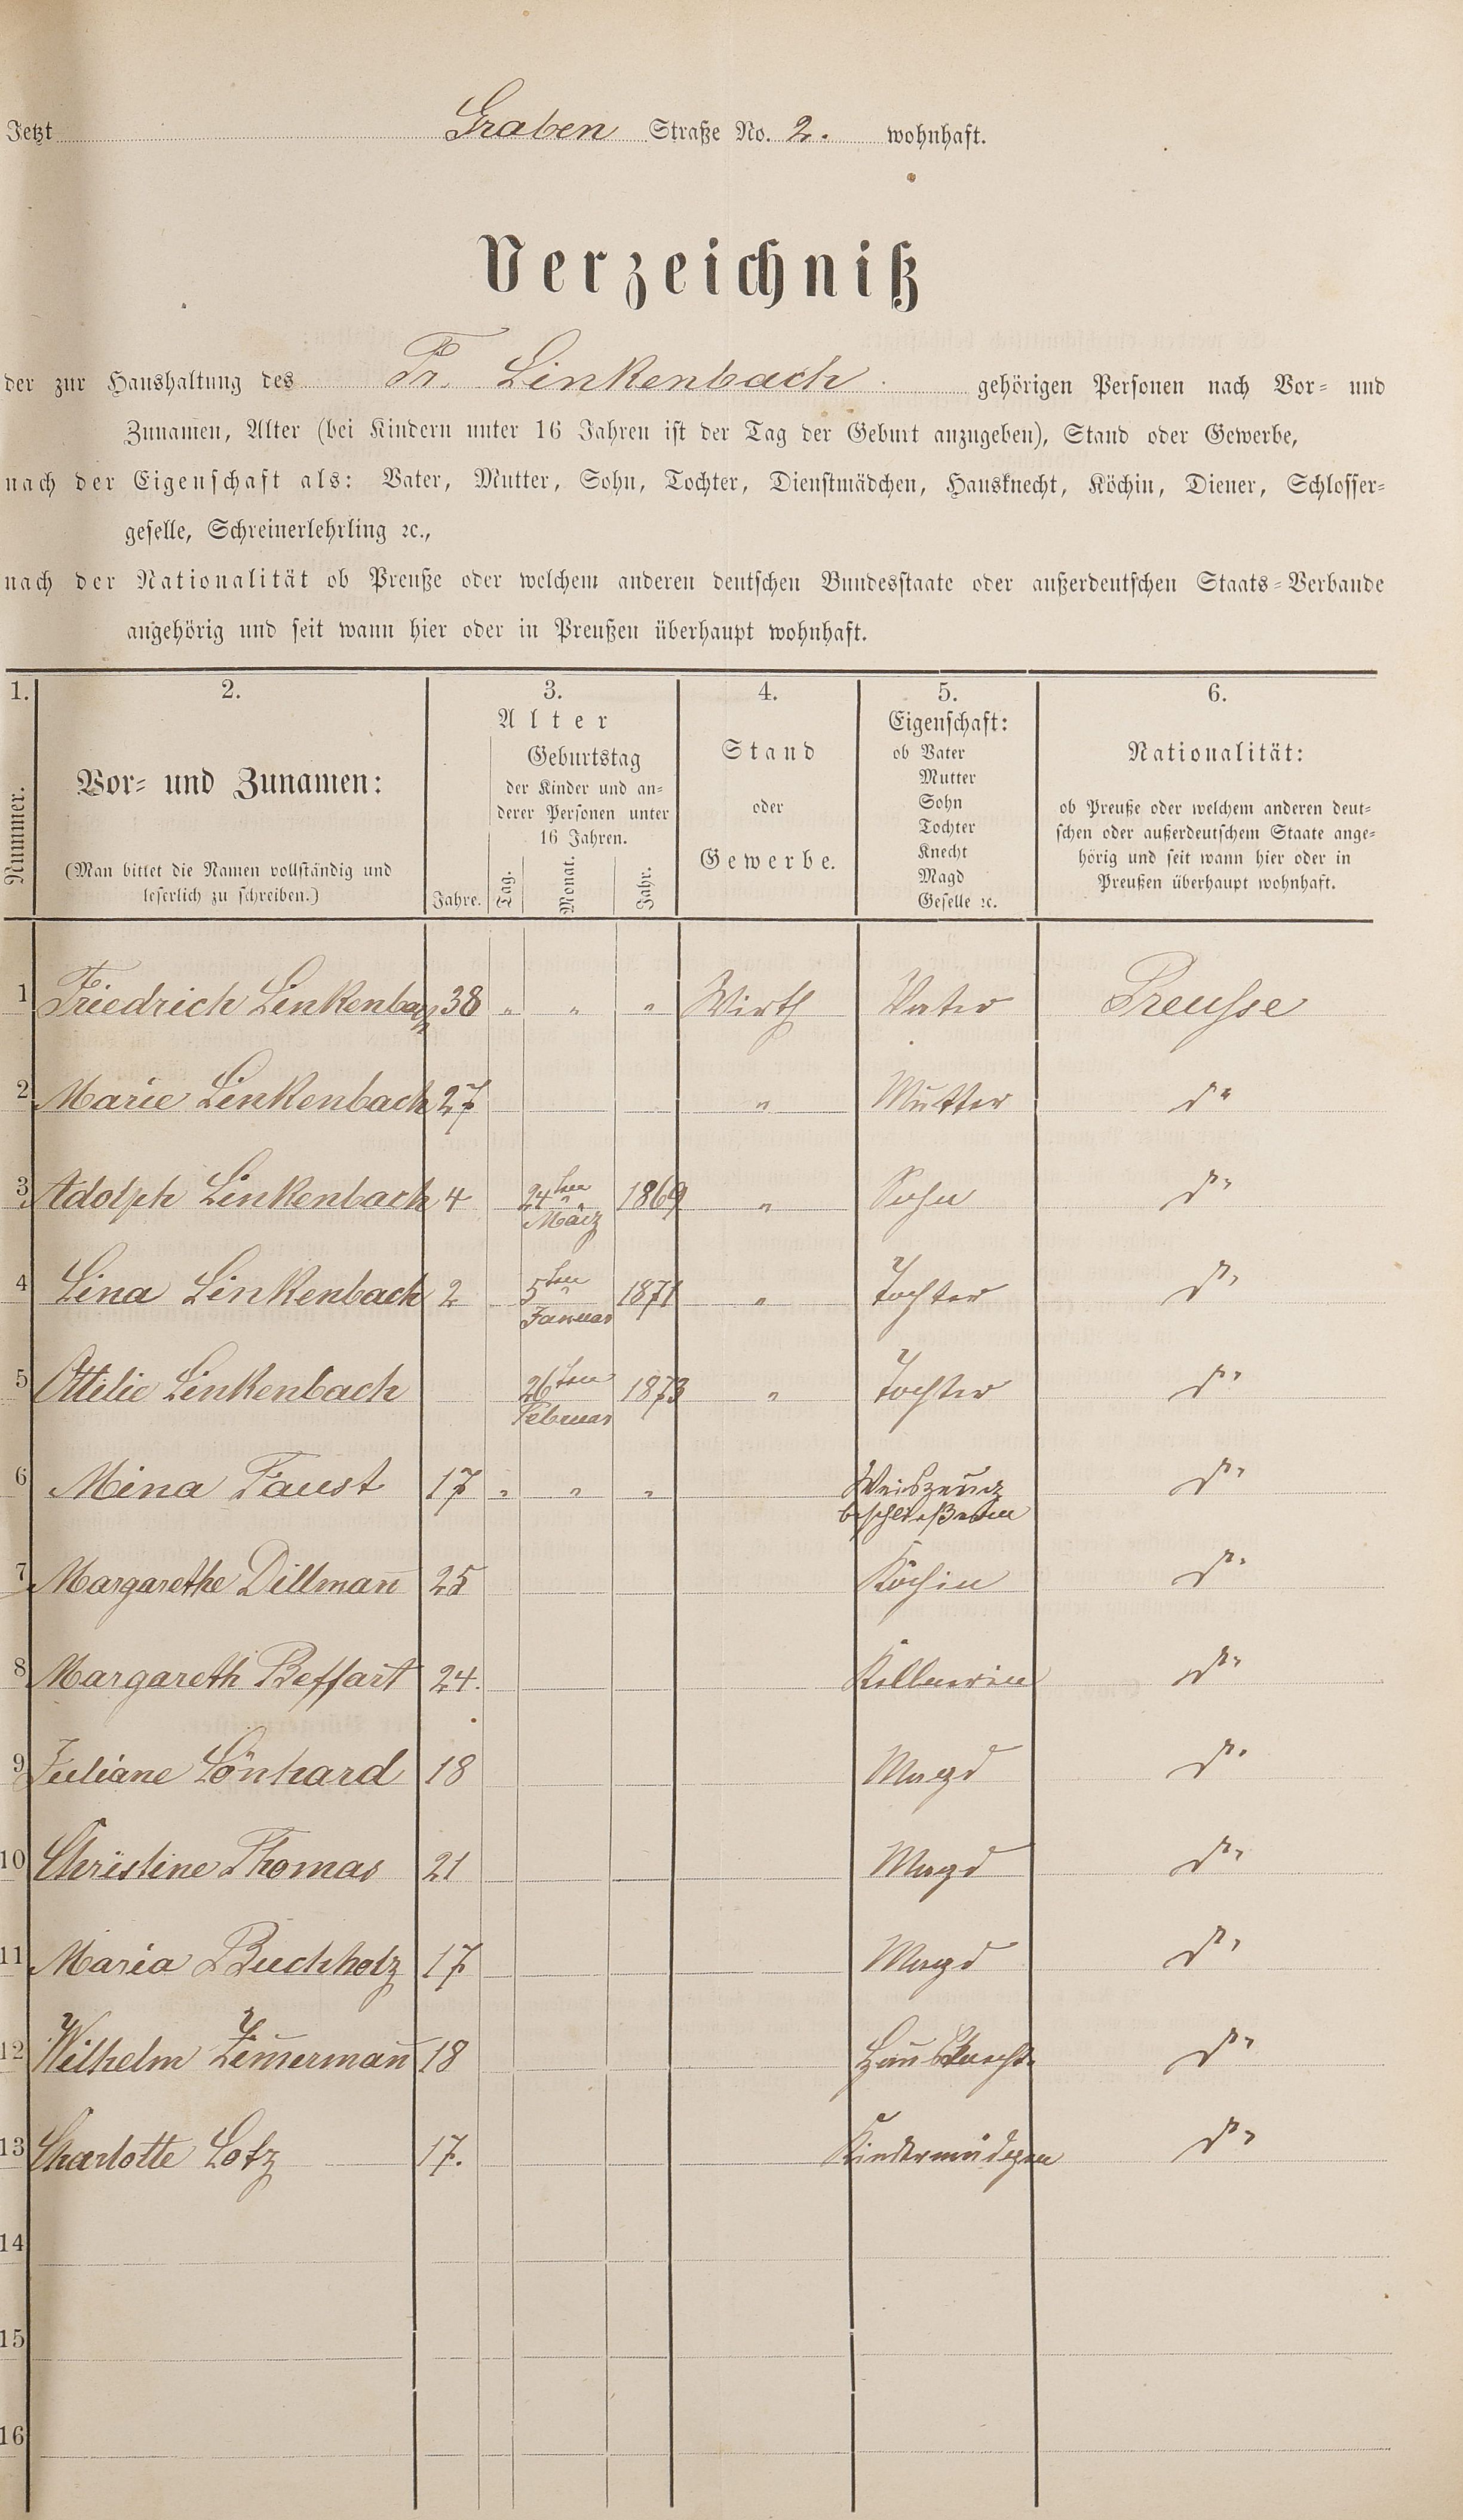 Jetzt Graben Straße No. 2. wohnhaft.
Verzeichniß
der zur Haushaltung des Fr. Linkenbach gehörigen Personen nach Vor- und
Zunamen, Alter (bei Kindern unter 16 Jahren ist der Tag der Geburt anzugeben), Stand oder Gewerbe,
nach der Eigenschaft als: Vater, Mutter, Sohn, Tochter, Dienstmädchen, Hausknecht, Köchin, Diener, Schlosser-
geselle, Schreinerlehrling ꝛc.,
nach der Nationalität ob Preuße oder welchem anderen deutschen Bundesstaate oder außerdeutschen Staats-Verbande
angehörig und seit wann hier oder in Preußen überhaupt wohnhaft.
1.
Nummer.
2.
Vor- und Zunamen:
(Man bittet die Namen vollständig und
leserlich zu schreiben.)
3.
Alter
Jahre.
Geburtstag
der Kinder und an-
derer Personen unter
16 Jahren.
Tag. Monat. Jahr.
4.
Stand
oder
Gewerbe.
5.
Eigenschaft:
ob Vater
Mutter
Sohn
Tochter
Knecht
Magd
Geselle ꝛc.
6.
Nationalität:
ob Preuße oder welchem anderen deut-
schen oder außerdeutschem Staate ange-
hörig und seit wann hier oder in
Preußen überhaupt wohnhaft.
1 Friedrich Linkenbach 38 " " " Wirth Vater Preusse
2 Marie Linkenbach 27 " Mutter do
3 Adolph Linkenbach 4 24ten März 1869 " Sohn do
4 Lina Linkenbach 2 5ten Januar 1871 " Tochter do
5 Ottilie Linkenbach 26ten Februar 1873 " Tochter do
6 Mina Faust 17 " " " Weiszeug
beschließerin do
7 Margarethe Dillman̄ 25 Köchin do
8 Margareth Beffart 24. Kellnerin do
9 Juliane Lönhard 18 Magd do
10 Christine Thomas 21 Magd do
11 Maria Buchholz 17 Magd do
12 Wilhelm Zim̄erman̄ 18 Hausknecht do
13 Charlotte Lotz 17. Kindermädgen do
14
15
16